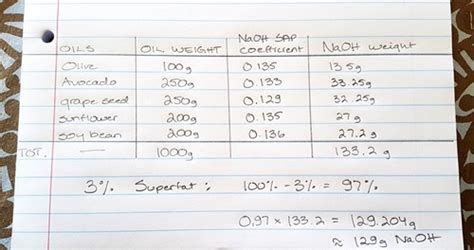 OILS OIL WEIGHT NaOH SAP coefficient NaOH weight
Olive 100g 0.135 13.5g
Avocado 250g 0.133 33.25g
grape seed 250g 0.129 32.25g
sunflower 200g 0.135 27g
soy bean 200g 0.136 27.2g
TOT. — 1000g 133.2g
3% Superfat: 100% - 3% = 97%
0.97 × 133.2 = 129.204g
≈ 129g NaOH